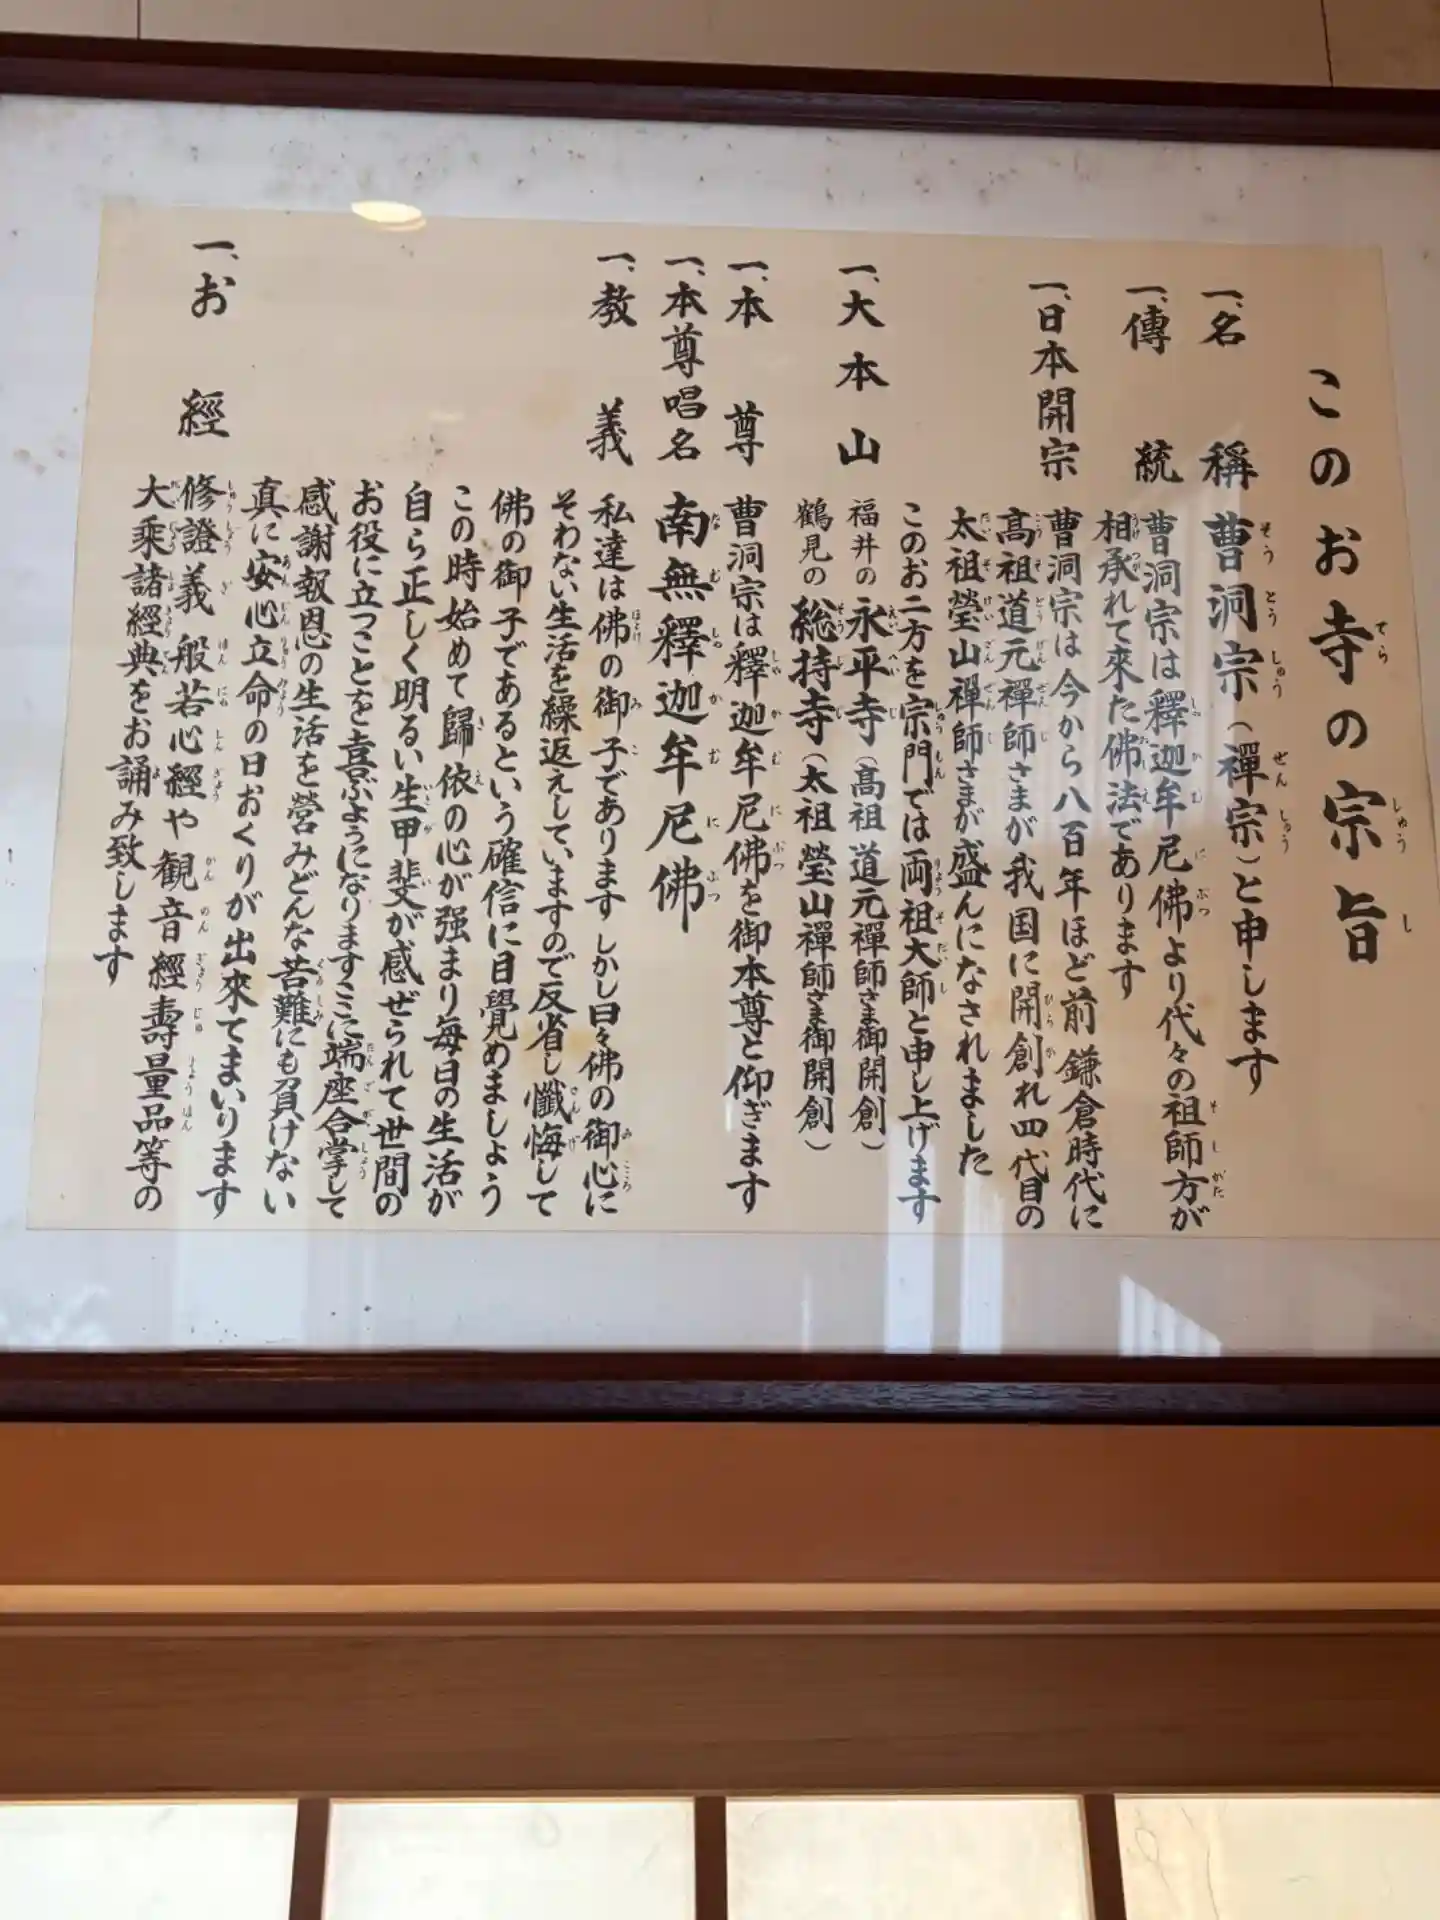 このお寺の宗旨
一、名稱 曹洞宗(禪宗)と申します
一、傳統 曹洞宗は釋迦牟尼佛より代々の祖師方が
相承れて來た佛法であります
一、日本開宗 曹洞宗は今から八百年ほど前鎌倉時代に
高祖道元禪師さまが我国に開創れ四代目の
太祖瑩山禪師さまが盛んになされました
このお二方を宗門では両祖大師と申し上げます
一、大本山 福井の永平寺(高祖道元禪師さま御開創)
鶴見の総持寺(太祖瑩山禪師さま御開創)
一、本尊 曹洞宗は釋迦牟尼佛を御本尊と仰ぎます
一、本尊唱名 南無釋迦牟尼佛
一、教義 私達は佛の御子であります しかし日々佛の御心に
そわない生活を繰返えしていますので反省し懺悔して
佛の御子であるという確信に目覺めましょう
この時始めて歸依の心が强まり毎日の生活が
自ら正しく明るい生甲斐が感ぜられて世間の
お役に立つことを喜ぶようになります ミに端座合掌して
感謝報恩の生活を營みどんな苦難にも負けない
真に安心立命の日おくりが出來てまいります
一、お經 修證義般若心經や観音經壽量品等の
大乘諸經典をお誦み致します